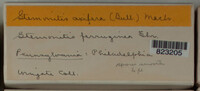 Stemonitis axifera (Bull.) Macbr.
Stemonitis ferruginea Ehr.
Pennsylvania - Philadelphia
823205
Wingate Coll.